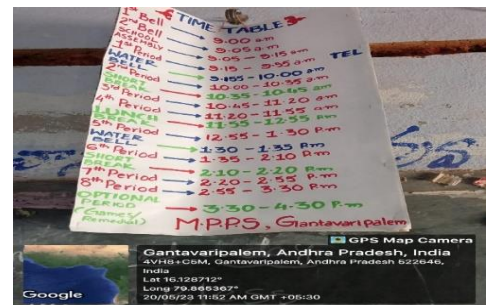 TIME TABLE
1st Bell → 9.00 am
2nd Bell → 9.05 am
SCHOOL ASSEMBLY → 9.05 - 9.15 am
1st Period → 9.15 - 9.55 am
WATER BELL → 9.55 - 10.00 am
2nd Period → 10.00 - 10.35 am
SHORT BREAK → 10.35 - 10.45 am
3rd Period → 10.45 - 11.20 am
4th Period → 11.20 - 11.55 am
LUNCH BREAK → 11.55 - 12.55 P.m
5th Period → 12.55 - 1.30 P.m
WATER BELL → 1.30 - 1.35 Pm
6th Period → 1.35 - 2.10 P.m
SHORT BREAK → 2.10 - 2.20 P.m
7th Period → 2.20 - 2.55 P.m
8th Period → 2.55 - 3.30 P.m
OPTIONAL PERIOD → 3:30 - 4.30 P.m
(Games/Remedial)
M.P.P.S, Gantavaripalem
TEL
GPS Map Camera
Gantavaripalem, Andhra Pradesh, India
4VH8+C5M, Gantavaripalem, Andhra Pradesh 522646,
India
Lat 16.128712°
Long 79.865367°
20/05/23 11:52 AM GMT +05:30
Google